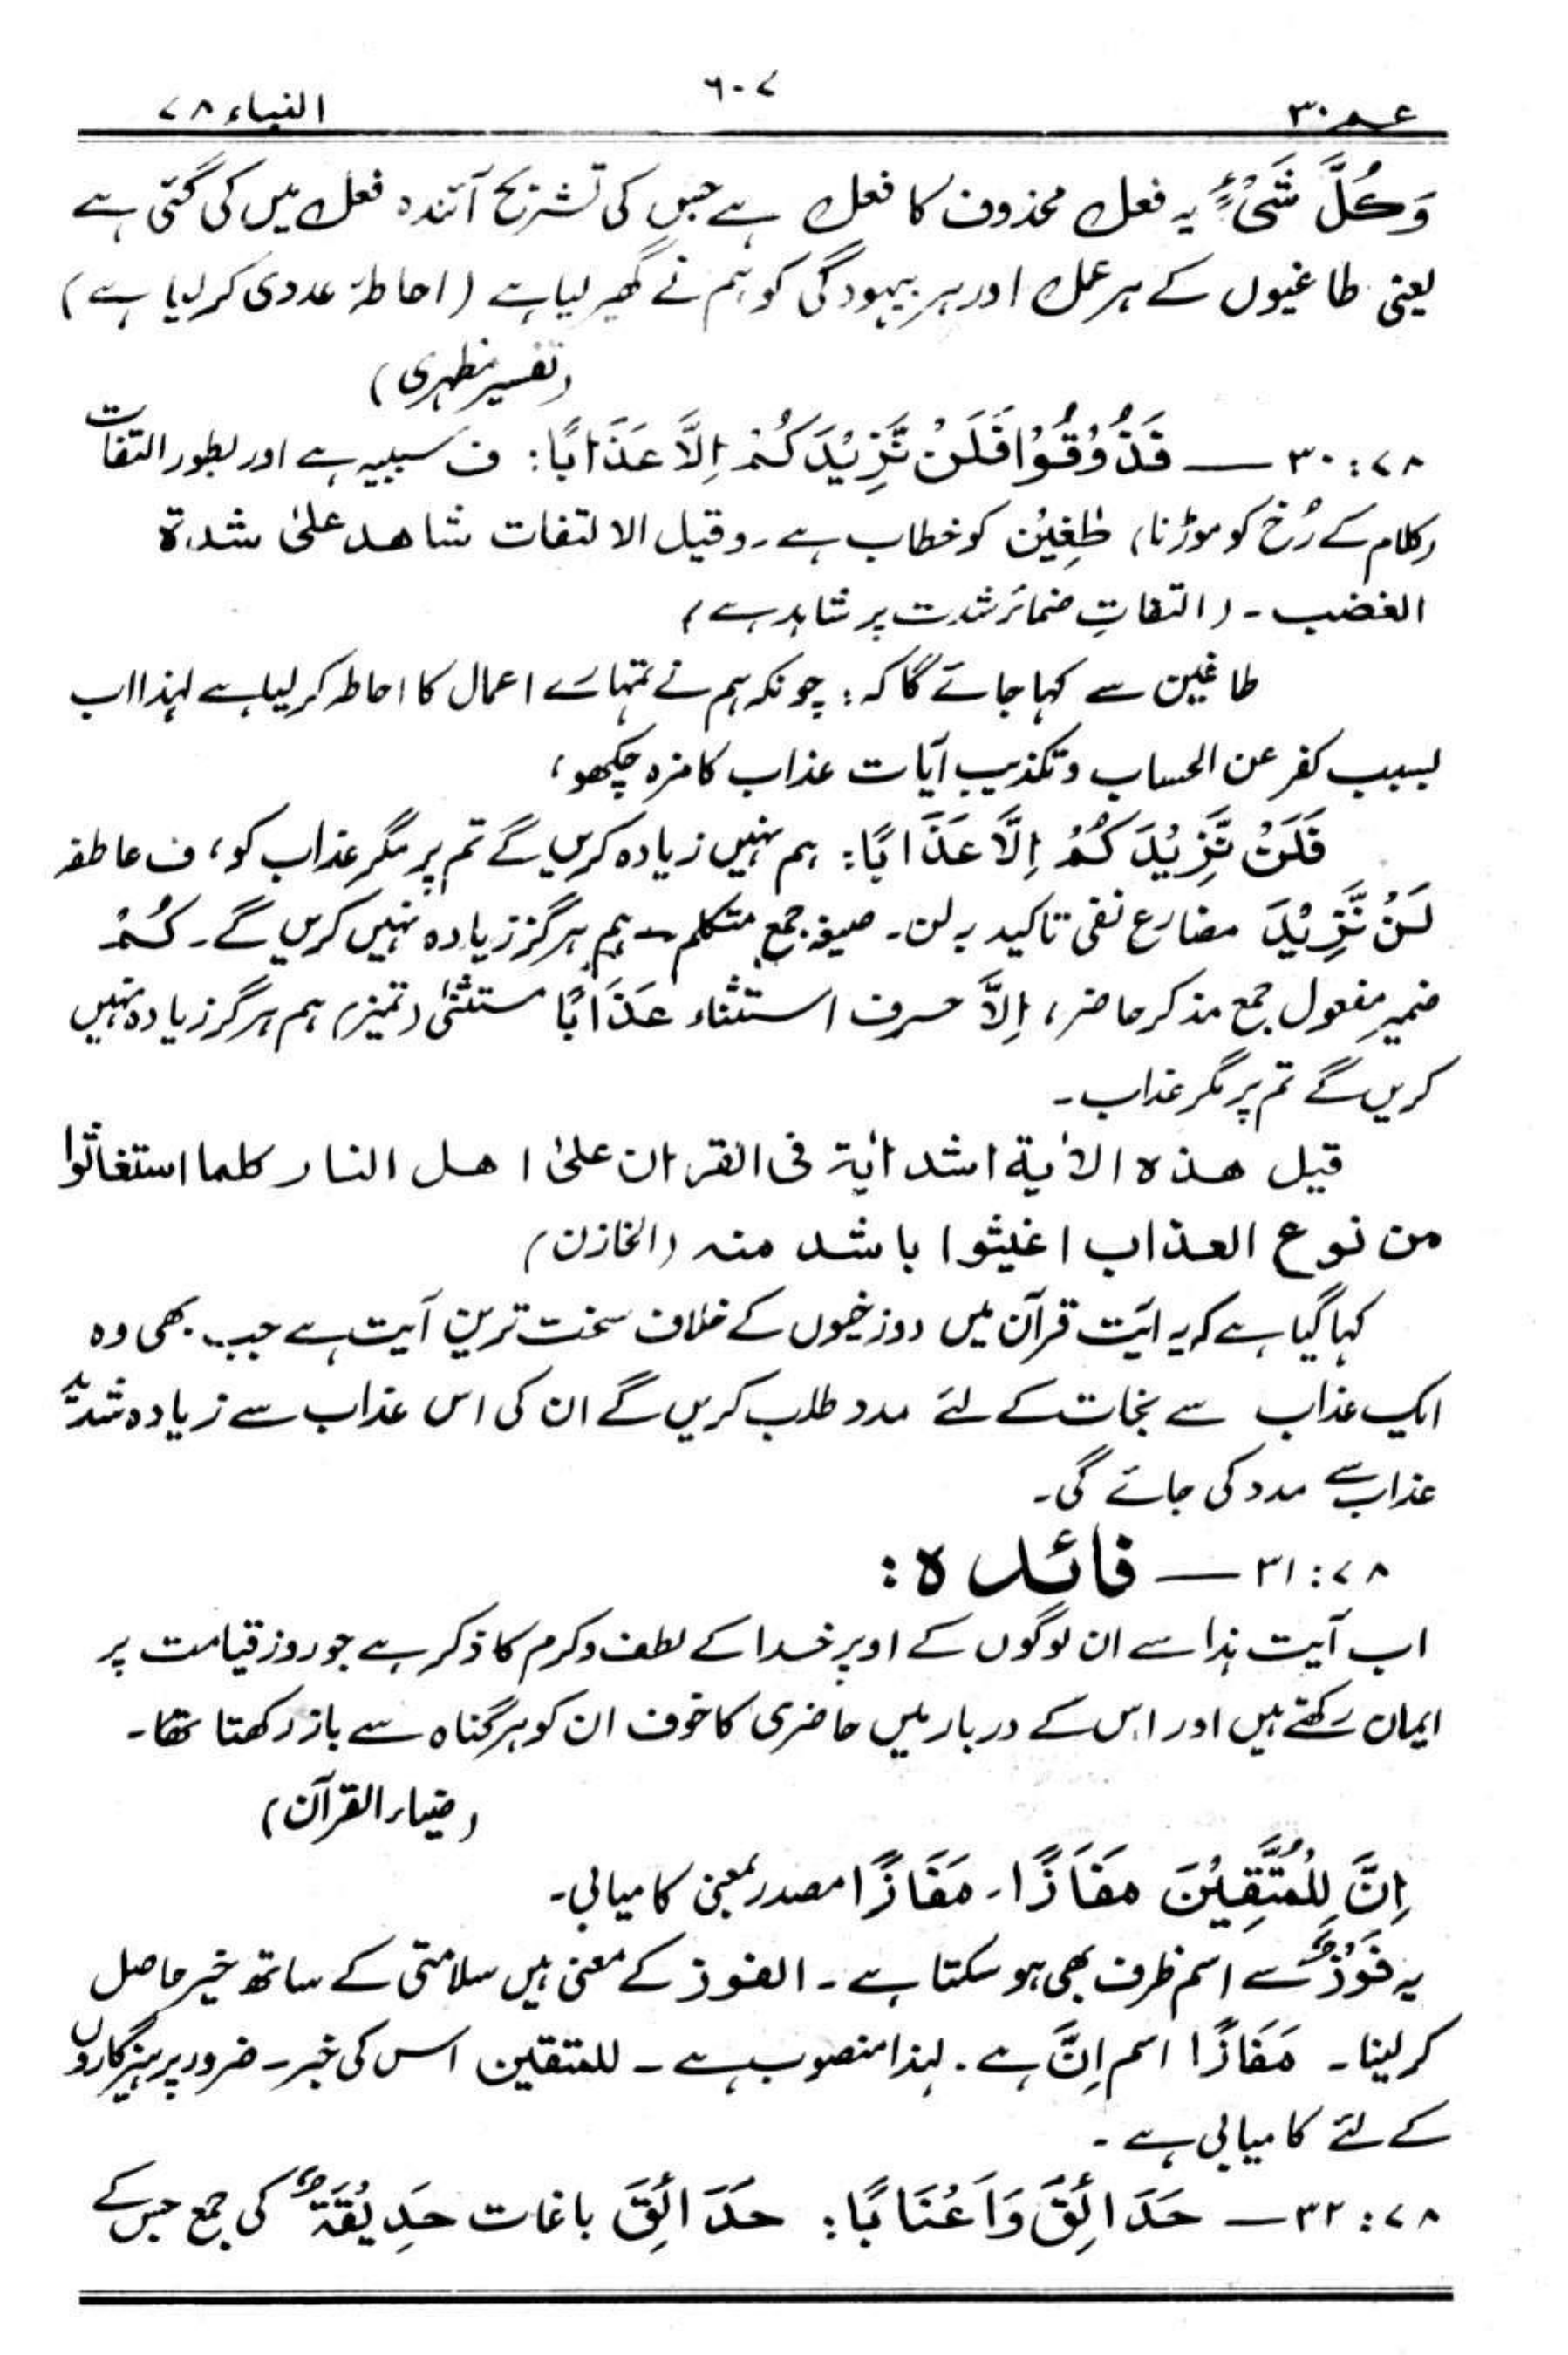 عم ٣٠
٦٠٧
النباء ٧٨
وَكُلَّ شَيْءٍ یہ فعل محذوف کا فعل ہے جس کی تشریح آئندہ فعل میں کی گئی ہے
یعنی طاغیوں کے ہر عمل اور ہر بیہودگی کو ہم نے گھیر لیا ہے (احاطۂ عددی کر لیا ہے)
(تفسیر مظہری)
٧٨:٣٠ — فَذُوْقُوْا فَلَنْ نَّزِيْدَكُمْ اِلَّا عَذَابًا: ف سببیہ ہے اور بطور التفات
(کلام کے رُخ کو موڑنا) طٰغِیْن کو خطاب ہے۔ وقیل الالتفات شاھد علیٰ شدۃ
الغضب۔ (التفاتِ ضمائر شدت پر شاہد ہے)
طاغین سے کہا جائے گا کہ: چونکہ ہم نے تمہارے اعمال کا احاطہ کر لیا ہے لہٰذا اب
بسبب کفر عن الحساب وتکذیب آیات عذاب کا مزہ چکھو،
فَلَنْ نَّزِيْدَكُمْ اِلَّا عَذَابًا: ہم نہیں زیادہ کریں گے تم پر مگر عذاب کو، ف عاطفہ
لَنْ نَّزِيْدَ مضارع نفی تاکید بہ لن۔ صیغہ جمع متکلم۔ ہم ہرگز زیادہ نہیں کریں گے۔ كُمْ
ضمیرِ مفعول جمع مذکر حاضر، اِلَّا حرف استثناء عَذَابًا مستثنیٰ (تمیز) ہم ہرگز زیادہ نہیں
کریں گے تم پر مگر عذاب۔
قیل ھذہ الاٰیۃ اشد اٰیۃ فی القراٰن علیٰ اھل النار کلما استغاثوا
من نوع العذاب اغیثوا باشد منہ (الخازن)
کہا گیا ہے کہ یہ آیت قرآن میں دوزخیوں کے خلاف سخت ترین آیت ہے جب بھی وہ
ایک عذاب سے نجات کے لئے مدد طلب کریں گے ان کی اس عذاب سے زیادہ شدید
عذاب سے مدد کی جائے گی۔
٧٨:٣١ — فائدہ:
اب آیت ہٰذا سے ان لوگوں کے اوپر خدا کے لطف وکرم کا ذکر ہے جو روز قیامت پر
ایمان رکھتے ہیں اور اس کے دربار میں حاضری کا خوف ان کو ہر گناہ سے باز رکھتا تھا۔
(ضیاء القرآن)
اِنَّ لِلْمُتَّقِيْنَ مَفَازًا۔ مَفَازًا مصدر بمعنی کامیابی۔
یہ فَوْزٌ سے اسم ظرف بھی ہو سکتا ہے۔ الفوز کے معنی ہیں سلامتی کے ساتھ خیر حاصل
کر لینا۔ مَفَازًا اسم اِنَّ ہے۔ لہٰذا منصوب ہے۔ للمتقین اس کی خبر۔ ضرور پرہیزگاروں
کے لئے کامیابی ہے۔
٧٨:٣٢ — حَدَائِقَ وَاَعْنَابًا: حَدَائِقَ باغات حَدِيْقَةٌ کی جمع جس کے